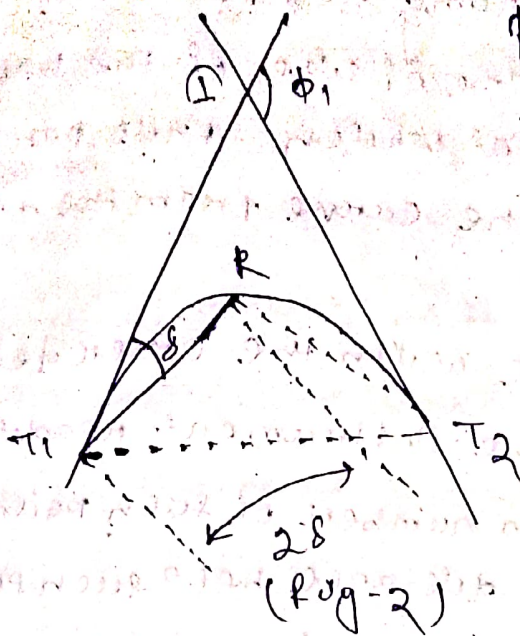 I
φ1
R
δ
T1
T2
2δ
(Fig-2)